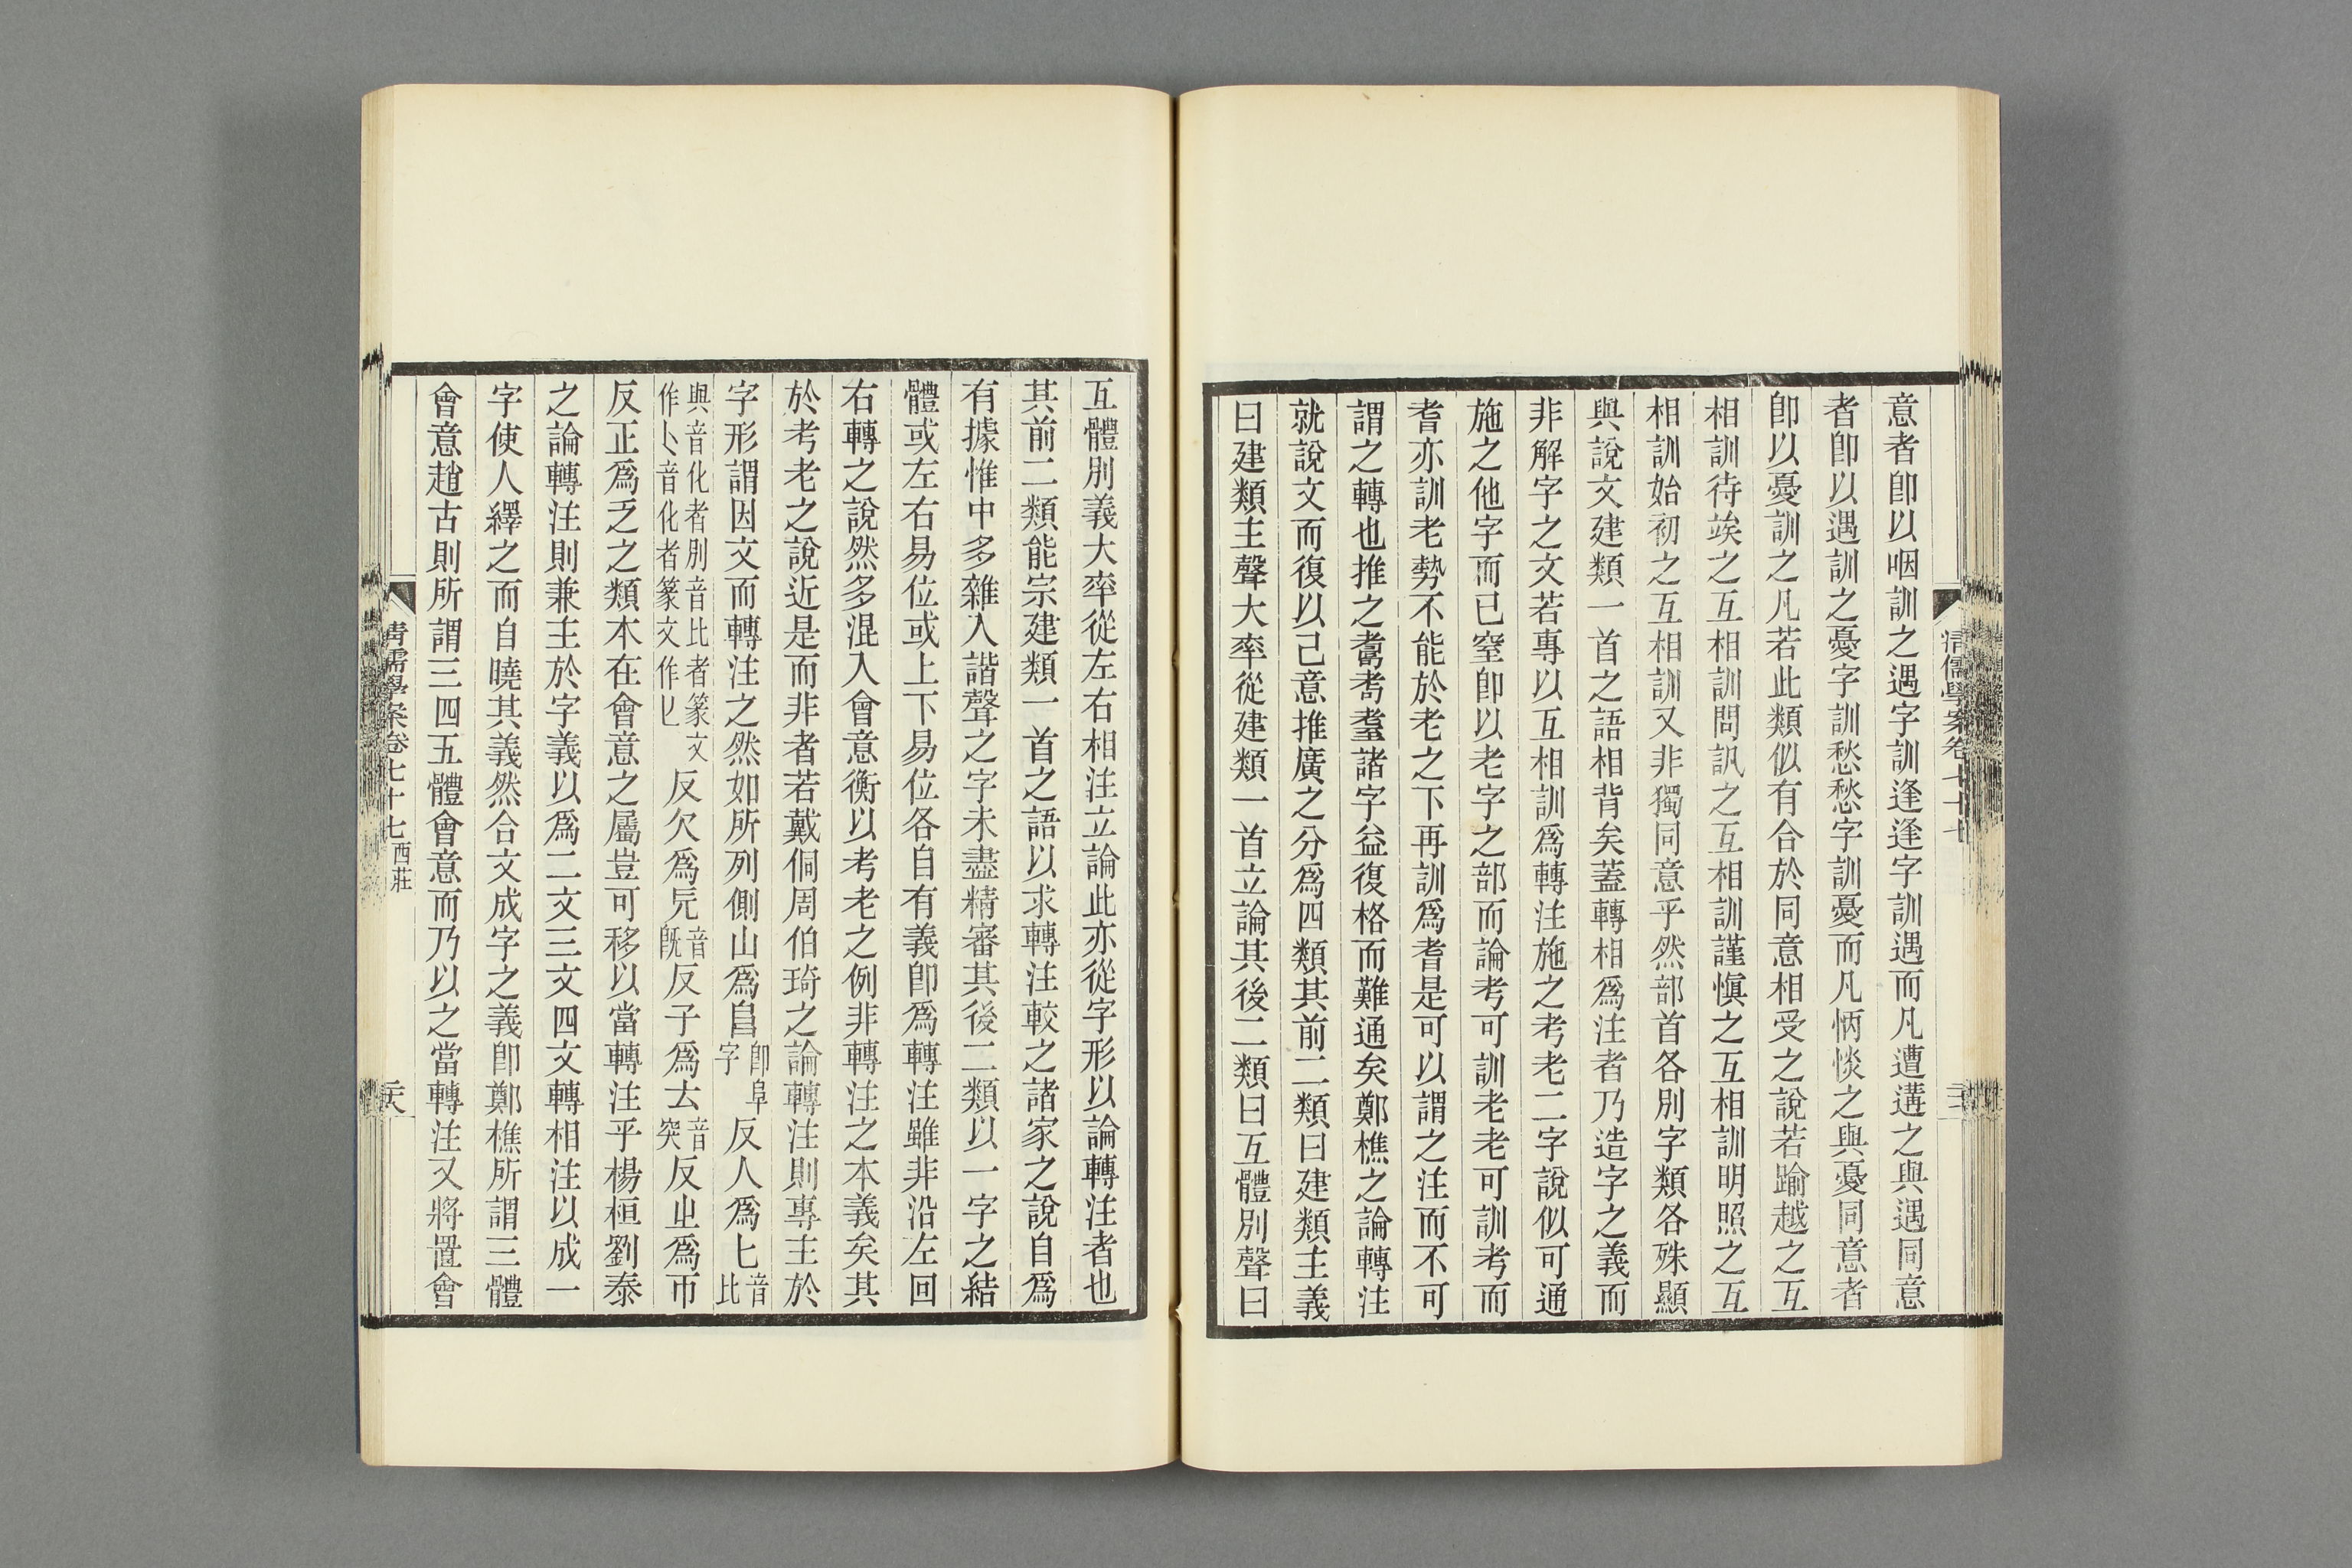 意者卽以咽訓之遇字訓逢逢字訓遇而凡遭遘之與遇同意
者卽以遇訓之憂字訓愁愁字訓憂而凡怲惔之與憂同意者
卽以憂訓之凡若此類似有合於同意相受之說若踰越之互
相訓待竢之互相訓問訊之互相訓謹愼之互相訓明照之互
相訓始初之互相訓又非獨同意乎然部首各別字類各殊顯
與說文建類一首之語相背矣蓋轉相爲注者乃造字之義而
非解字之文若專以互相訓爲轉注施之考老二字說似可通
施之他字而已窒卽以老字之部而論考可訓老老可訓考而
耆亦訓老勢不能於老之下再訓爲耆是可以謂之注而不可
謂之轉也推之耇耉耋諸字益復格而難通矣鄭樵之論轉注
就說文而復以己意推廣之分爲四類其前二類曰建類主義
曰建類主聲大率從建類一首立論其後二類曰互體別聲曰
清儒學案卷七十七
互體別義大率從左右相注立論此亦從字形以論轉注者也
其前二類能宗建類一首之語以求轉注較之諸家之說自爲
有據惟中多雜入諧聲之字未盡精審其後二類以一字之結
體或左右易位或上下易位各自有義卽爲轉注雖非沿左回
右轉之說然多混入會意衡以考老之例非轉注之本義矣其
於考老之說近是而非者若戴侗周伯琦之論轉注則專主於
字形謂因文而轉注之然如所列側山爲𨸏卽阜字反人爲匕音比
與音化者別音比者篆文作𠤎音化者篆文作匕反欠爲旡音旣反子爲𠫓音突反㞢爲帀
反正爲乏之類本在會意之屬豈可移以當轉注乎楊桓劉泰
之論轉注則兼主於字義以爲二文三文四文轉相注以成一
字使人繹之而自曉其義然合文成字之義卽鄭樵所謂三體
會意趙古則所謂三四五體會意而乃以之當轉注又將置會
清儒學案卷七十七 西莊